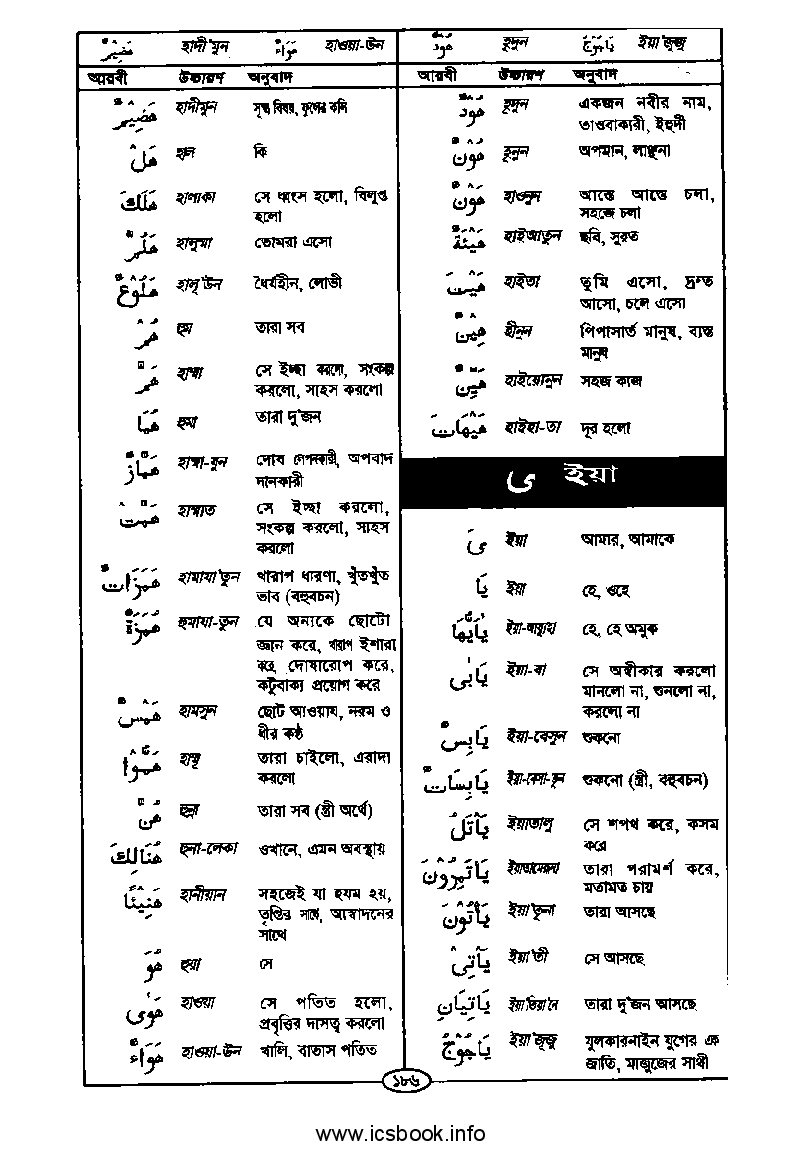 هَضِيْمٌ হাদী'মুন هَوَاءٌ হাওয়া-উন
আরবী উচ্চারণ অনুবাদ
هَضِيْمٌ হাদীমুন সূক্ষ্ম বিষয়, ফুলের কলি
هَلْ হাল কি
هَلَكَ হালাকা সে ধ্বংস হলো, বিলুপ্ত
হলো
هَلُمَّ হালুম্মা তোমরা এসো
هَلُوْعٌ হালূ'উন ধৈর্যহীন, লোভী
هُمْ হুম তারা সব
هَمَّ হাম্মা সে ইচ্ছা করলো, সংকল্প
করলো, সাহস করলো
هُمَا হুমা তারা দু'জন
هَمَّازٌ হাম্মা-যুন দোষ লেপনকারী, অপবাদ
দানকারী
هَمَّتْ হাম্মাত সে ইচ্ছা করলো,
সংকল্প করলো, সাহস
করলো
هَمَزَاتٌ হামাযা'তুন খারাপ ধারণা, খুঁতখুঁত
ভাব (বহুবচন)
هُمَزَةٌ হুমাযা-তুন যে অন্যকে ছোটো
জ্ঞান করে, খারাপ ইশারা
করে, দোষারোপ করে,
কটুবাক্য প্রয়োগ করে
هَمْسٌ হামসুন ছোট আওয়ায, নরম ও
ধীর কণ্ঠ
هَمُّوْا হাম্মূ তারা চাইলো, এরাদা
করলো
هُنَّ হুন্না তারা সব (স্ত্রী অর্থে)
هُنَالِكَ হুনা-লেকা ওখানে, এমন অবস্থায়
هَنِيْئًا হানীয়ান সহজেই যা হযম হয়,
তৃপ্তির সাথে, আস্বাদনের
সাথে
هُوَ হুয়া সে
هَوٰى হাওয়া সে পতিত হলো,
প্রবৃত্তির দাসত্ব করলো
هَوَاءٌ হাওয়া-উন খালি, বাতাস পতিত
هُوْدٌ হূদুন يَاجُوْجُ ইয়া'জূজু
আরবী উচ্চারণ অনুবাদ
هُوْدٌ হূদুন একজন নবীর নাম,
তাওবাকারী, ইহুদী
هُوْنٌ হূনুন অপমান, লাঞ্ছনা
هَوْنٌ হাওনুন আস্তে আস্তে চলা,
সহজে চলা
هَيْئَةٌ হাইআতুন ছবি, সুরত
هَيْتَ হাইতা তুমি এসো, দ্রুত
আসো, চলে এসো
هِيْنٌ হীনুন পিপাসার্ত মানুষ, ব্যস্ত
মানুষ
هَيِّنٌ হাইয়্যেনুন সহজ কাজ
هَيْهَاتَ হাইহা-তা দূর হলো
ى ইয়া
ىَ ইয়া আমার, আমাকে
يَا ইয়া হে, ওহে
يٰاَيُّهَا ইয়া-আয়্যুহা হে, হে অমুক
يَاْبٰى ইয়া-বা সে অস্বীকার করলো
মানলো না, শুনলো না,
করলো না
يَابِسٌ ইয়া-বেসুন শুকনো
يَابِسَاتٌ ইয়া-বেসা-তুন শুকনো (স্ত্রী, বহুবচন)
يَاْتَلُ ইয়াতালু সে শপথ করে, কসম
করে
يَاْتَمِرُوْنَ তারা পরামর্শ করে,
মতামত চায়
يَاْتُوْنَ ইয়া'তূনা তারা আসছে
يَاْتِىْ ইয়া'তী সে আসছে
يَاْتِيَانِ ইয়া'তিয়ানে তারা দু'জন আসছে
يَاجُوْجُ ইয়া'জূজু যুলকারনাইন যুগের এক
জাতি, মাজুজের সাথী
১৮৬
www.icsbook.info